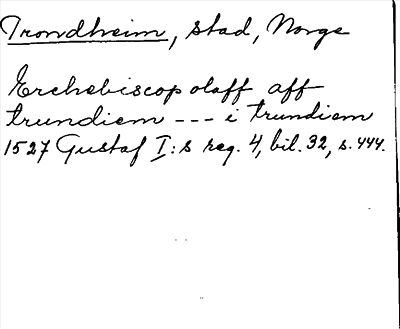 Trondheim, stad, Norge
Erchebiscop olaff aff
trundiem --- i trundiem
1527 Gustaf I:s reg. 4, bil. 32, s. 444.